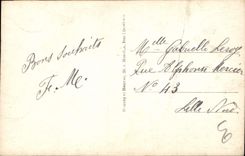 Bons Souhaits
F. M.
Melle Gabrielle Leroy
Rue Alphonse Mercier
No 43
Lille Nord